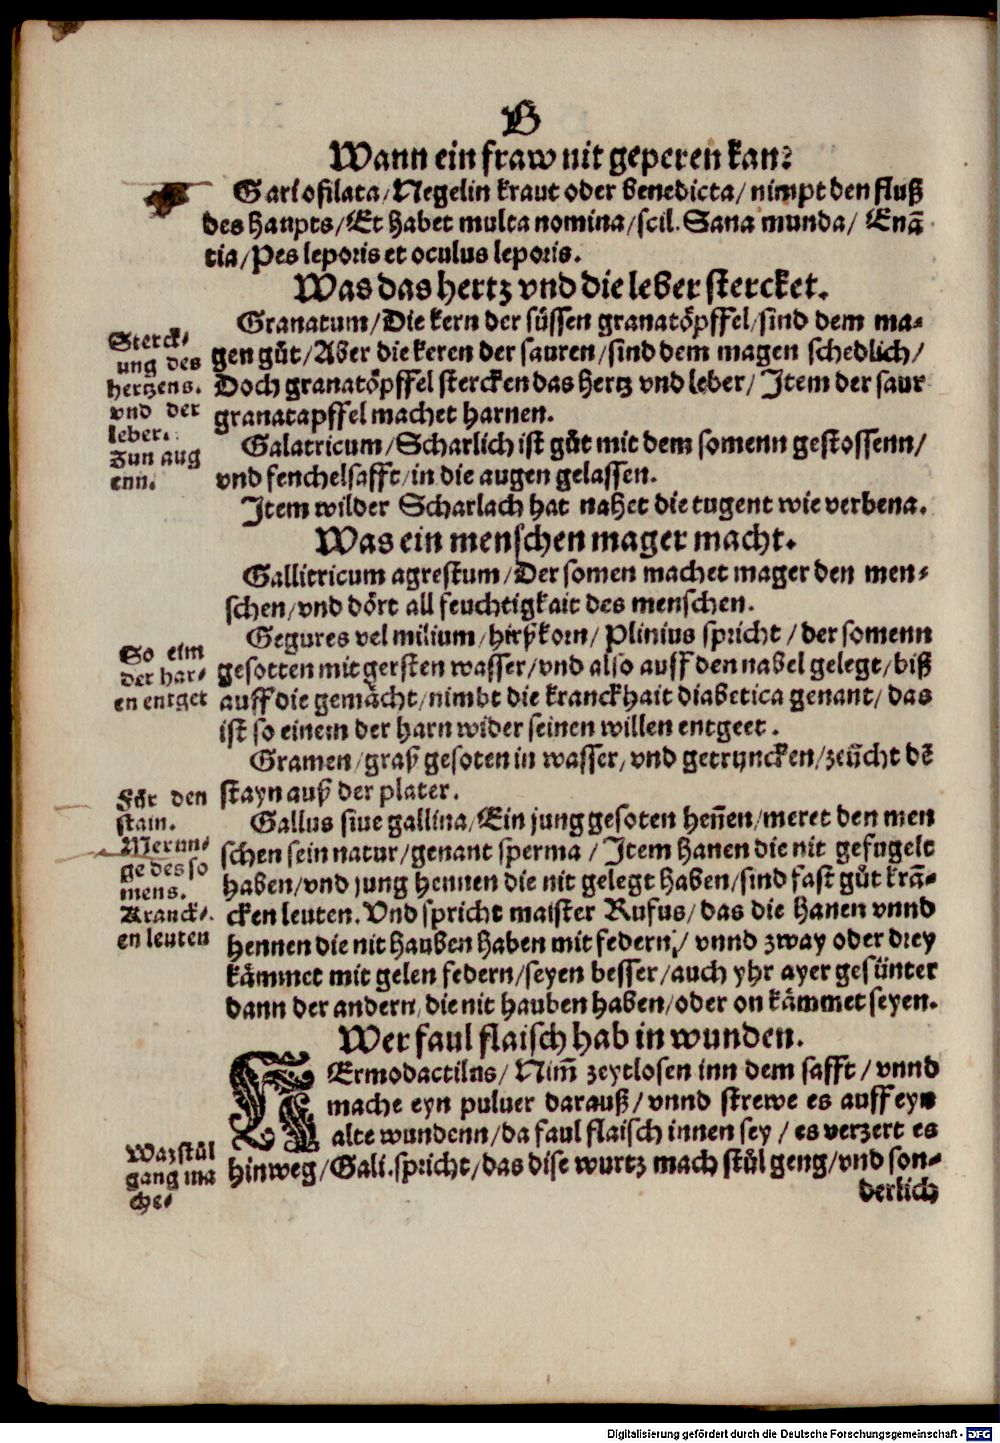 G
Wann ein fraw nit geperen kan?
Gariofilata/Negelin kraut oder benedicta/nimpt den fluß
des haupts/Et habet multa nomina/scil. Sana munda/ Enā
tia/Pes leporis et oculus leporis.
Was das hertz vnd die leber stercket.
Granatum/Die kern der süssen granatöpffel/sind dem ma-
gen gůt/Aber die keren der sauren/sind dem magen schedlich/
Doch granatöpffel stercken das hertz vnd leber/Item der saur
granatapffel machet harnen.
Sterck-
ung des
hertzens.
vnd der
leber.
Galatricum/Scharlich ist gůt mit dem somenn gestossenn/
vnd fenchelsafft/in die augen gelassen.
Zun aug
enn.
Item wilder Scharlach hat nahet die tugent wie verbena.
Was ein menschen mager macht.
Gallitricum agrestum/Der somen machet mager den men-
schen/vnd dört all feuchtigkait des menschen.
Gegures vel milium/hirßkorn/Plinius spricht/der somenn
gesotten mit gersten wasser/vnd also auff den nabel gelegt/biß
auff die gemächt/nimbt die kranckhait diabetica genant/das
ist so einem der harn wider seinen willen entgeet.
So eim
der har-
en entget
Gramen/graß gesoten in wasser/vnd getryncken/zeücht dē
stayn auß der plater.
Für den
stain.
Gallus siue gallina/Ein jung gesoten heñen/meret den men
schen sein natur/genant sperma/Item hanen die nit gefugelt
haben/vnd jung hennen die nit gelegt haben/sind fast gůt krā-
cken leuten. Vnd spricht maister Rufus/das die hanen vnnd
hennen die nit hauben haben mit federn/vnnd zway oder drey
kämmet mit gelen federn/seyen besser/auch yhr ayer gesünter
dann der andern/die nit hauben haben/oder on kämmet seyen.
Merun-
ge des so
mens.
Kranck-
en leuten
Wer faul flaisch hab in wunden.
HErmodactilus/Nim̄ zeytlosen inn dem safft/vnnd
mache eyn puluer darauß/vnnd strewe es auff eyn
alte wundenn/da faul flaisch innen sey/es verzert es
hinweg/Gali.spricht/das dise wurtz mach stůl geng/vnd son-
derlich
Waz stůl
gang ma
che-
Digitalisierung gefördert durch die Deutsche Forschungsgemeinschaft - DFG